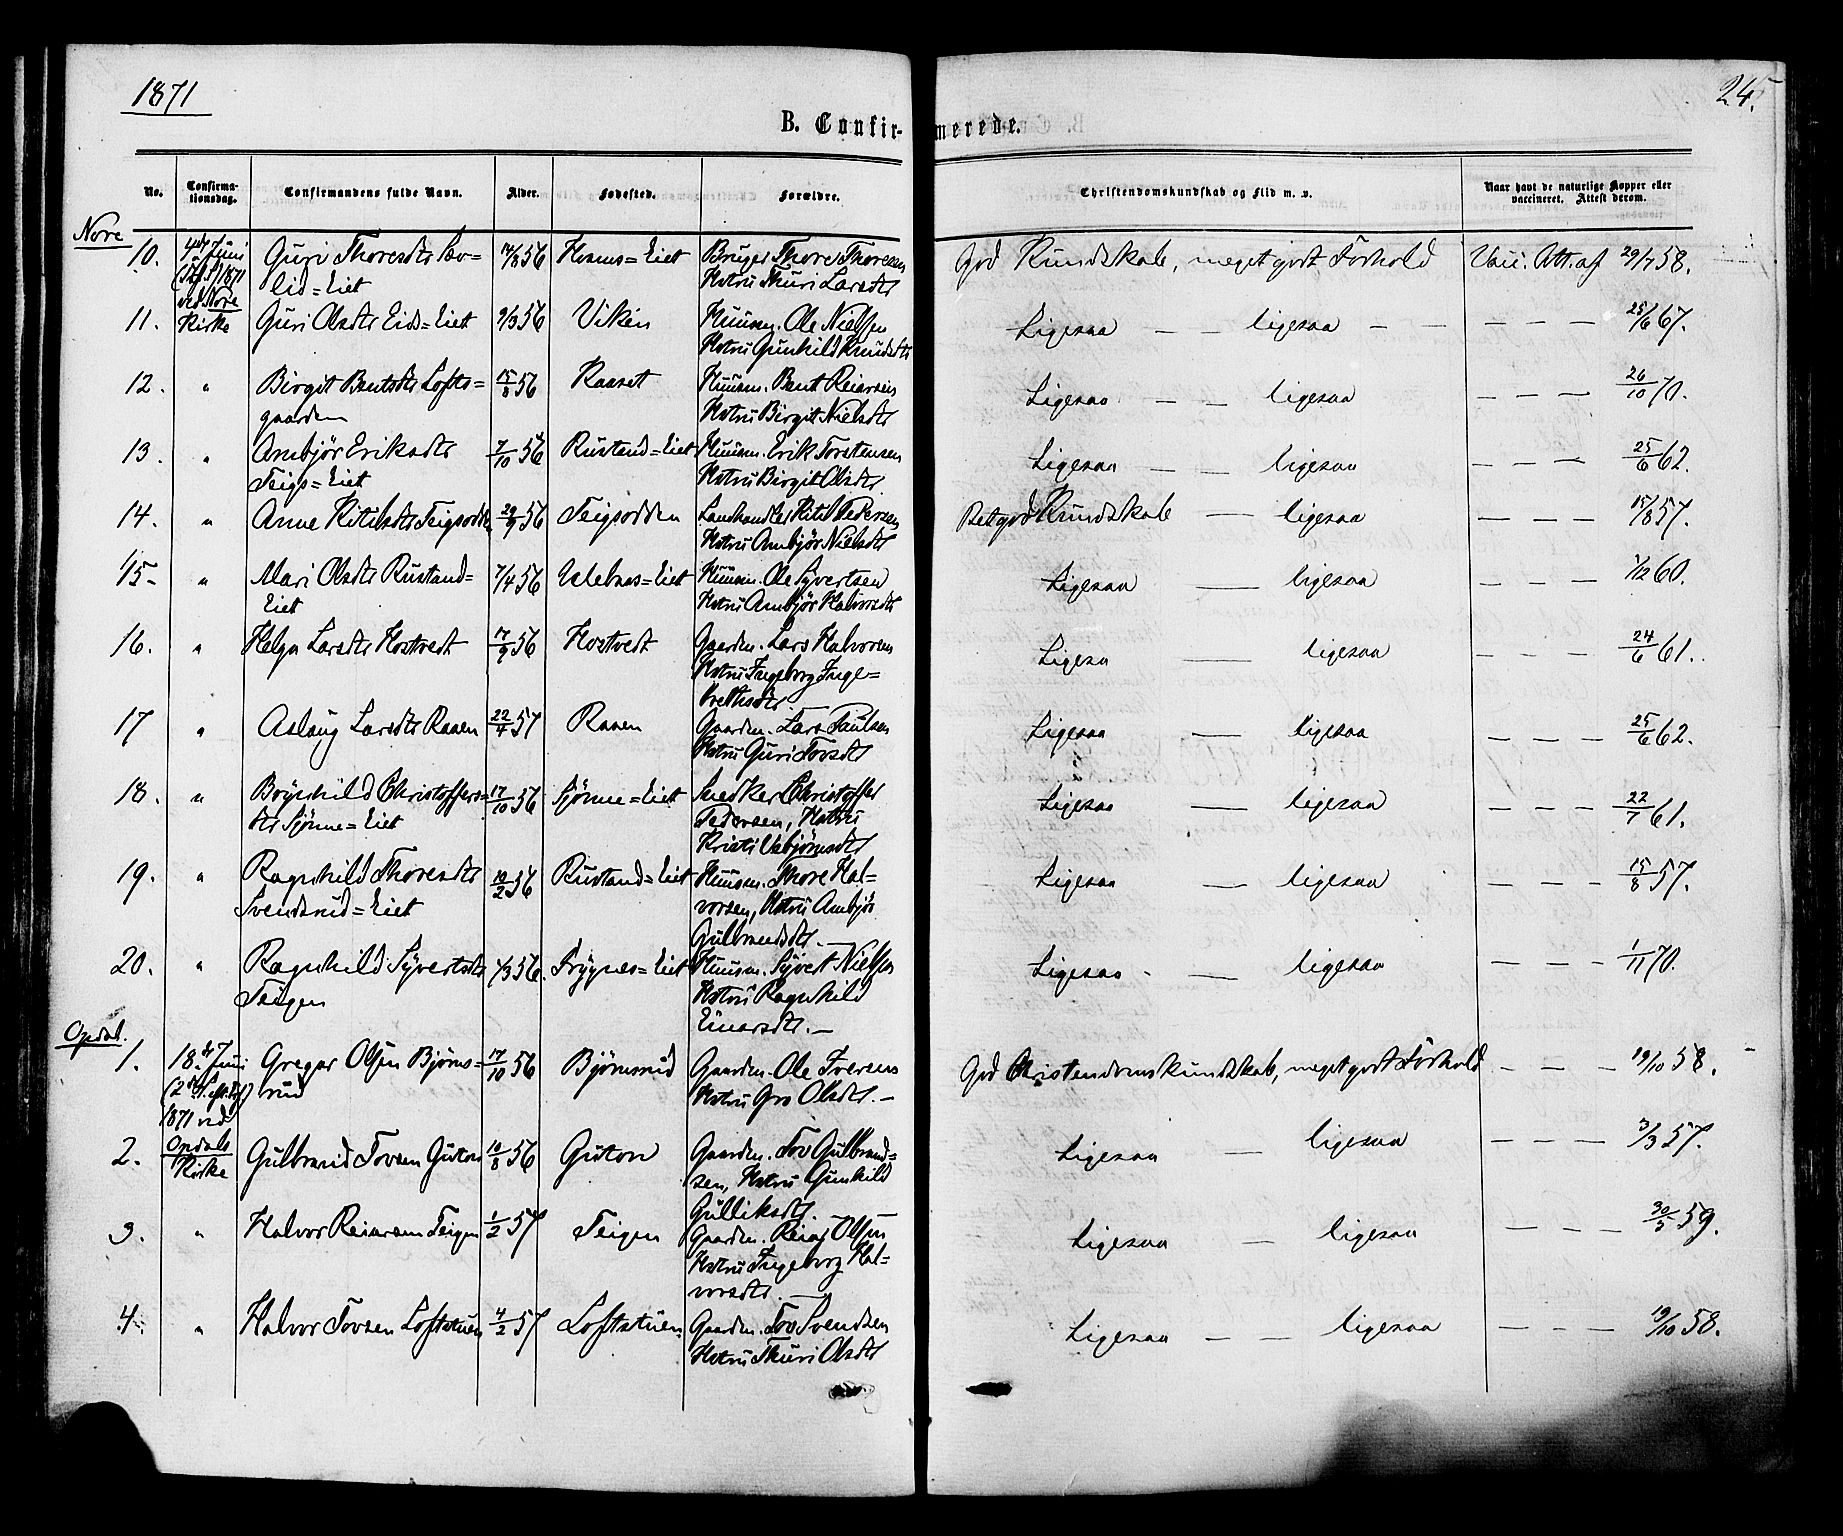 1871
24.
B. Confirmerede.
No. Confirmationsdag. Confirmandens fulde Navn. Alder. Fødested. Forældre. Christendomskundskab og Flid m. v. Naar havt de naturlige Kopper eller vaccineret. Attest derom.
Nore
10. 4de Juni 1871 ved Nore Kirke Guri Thoresdtr Løvlid=Eiet 14/8 56 Bruger Thore Thoresen Hstru Thuri Larsdtr God Kundskab, meget godt Forhold Vacc. Att. af 29/7 58.
11. Guri Olsdtr Eids=Eiet 9/3 56 Viken Huusm. Ole Nielsen Hstru Gunhild Knudsdtr Ligesaa — — ligesaa — — — — — 25/6 67.
12. " Birgit Bentsdtr Loftsgaarden 15/8 56 Raaset Huusm. Bent Reiersen Hstru Birgit Nielsdtr Ligesaa — — ligesaa — — — 26/10 70.
13. " Ambjør Eriksdtr Teigs=Eiet 7/10 56 Rustand=Eiet Huusm. Erik Torstensen Hstru Birgit Olsdtr Ligesaa — — ligesaa — — — 25/6 62.
14. " Anne Kittilsdtr Teigsodden 29/9 56 Teigsodden Landhandler Kittil Pedersen Hstru Ambjør Nielsdtr Retgod Kundskab — ligesaa — — — 15/8 57.
15. " Mari Olsdtr Rustand=Eiet 7/4 56 Huusm. Ole Syvertsen Hstru Ambjør Halvorsdtr Ligesaa — ligesaa — — — 1/12 60.
16. " Helga Larsdtr Hostvedt 17/9 56 Hostvedt Gaardm. Lars Halvorsen Hstru Ingeborg Ingebrethsdtr Ligesa — ligesaa — — — 24/6 61.
17 " Aslaug Larsdtr Raaen 22/4 57 Raaen Gaardm. Lars Paulsen Hstru Guri Tovsdtr Ligesaa — ligesaa — — — 25/6 62.
18. " Brynhild Christoffersdtr Sjønne=Eiet 17/10 56 Sjønne=Eiet Snedker Christoffer Pedersen, Hstru Kristi Asbjørnsdtr Ligesaa — ligesaa — — — 22/7 61.
19. " Ragnhild Thoresdtr Svendsrud=Eiet 10/2 56 Rustand=Eiet Huusm. Thore Halvorsen, Hstru Ambjør Gulbrandsdtr. — Ligesaa — ligesaa — — — 15/8 57.
20. " Ragnhild Syvertsdtr Teigen 4/3 56. Frygnes=Eiet Huusm. Syvert Nielsen Hstru Ragnhild Einarsdtr. — Ligesaa — ligesaa — — — 1/11 70.
Opdal.
1. 18de Juni 1871 ved Opdals Kirke Gregar Olsen Bjørnsrud 17/10 56 Bjørnsrud Gaardm. Ole Iversen Hstru Gro Olsdtr. — God Christendomskundskab, meget godt Forhold — — — 19/10 58.
2. Gulbrand Tovsen Guton 10/8 56 Guton Gaardm. Tov Gulbrandsen, Hstru Gunhild Gulliksdtr. Ligesaa — ligesaa — — — 3/3 57.
3. " Halvor Reiarsen Teigen 1/2 57 Teigen Gaardm. Reiar Olsen Hstru Ingeborg Halvorsdtr. — Ligesaa — ligesaa — — — 30/3 59.
4. " Halvor Tovsen Loftstuen 4/2 57 Loftstuen Gaardm. Tov Svendsen Hstru Thuri Olsdtr Ligesaa — — ligesaa — — — 19/10 58.